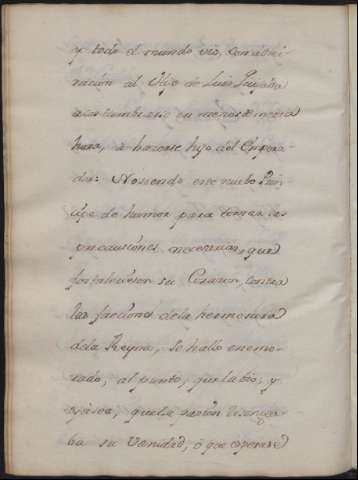 y todo el mundo vió, con admi-
ración al Hijo de Luis Quijada
acostumbrarse en menos de media
hora, à hacerse hijo del Empera-
dor: No siendo este nuebo Prin-
cipe de humor para tomar las
precauciones necesarias, que
fortaleciesen su Corazon, contra
las facciones dela hermosura
dela Reyna, se hallo enamo-
rado, al punto, que la vio; y
ya sea, que la pasion lisongea-
ba su Vanidad, ò que esperase